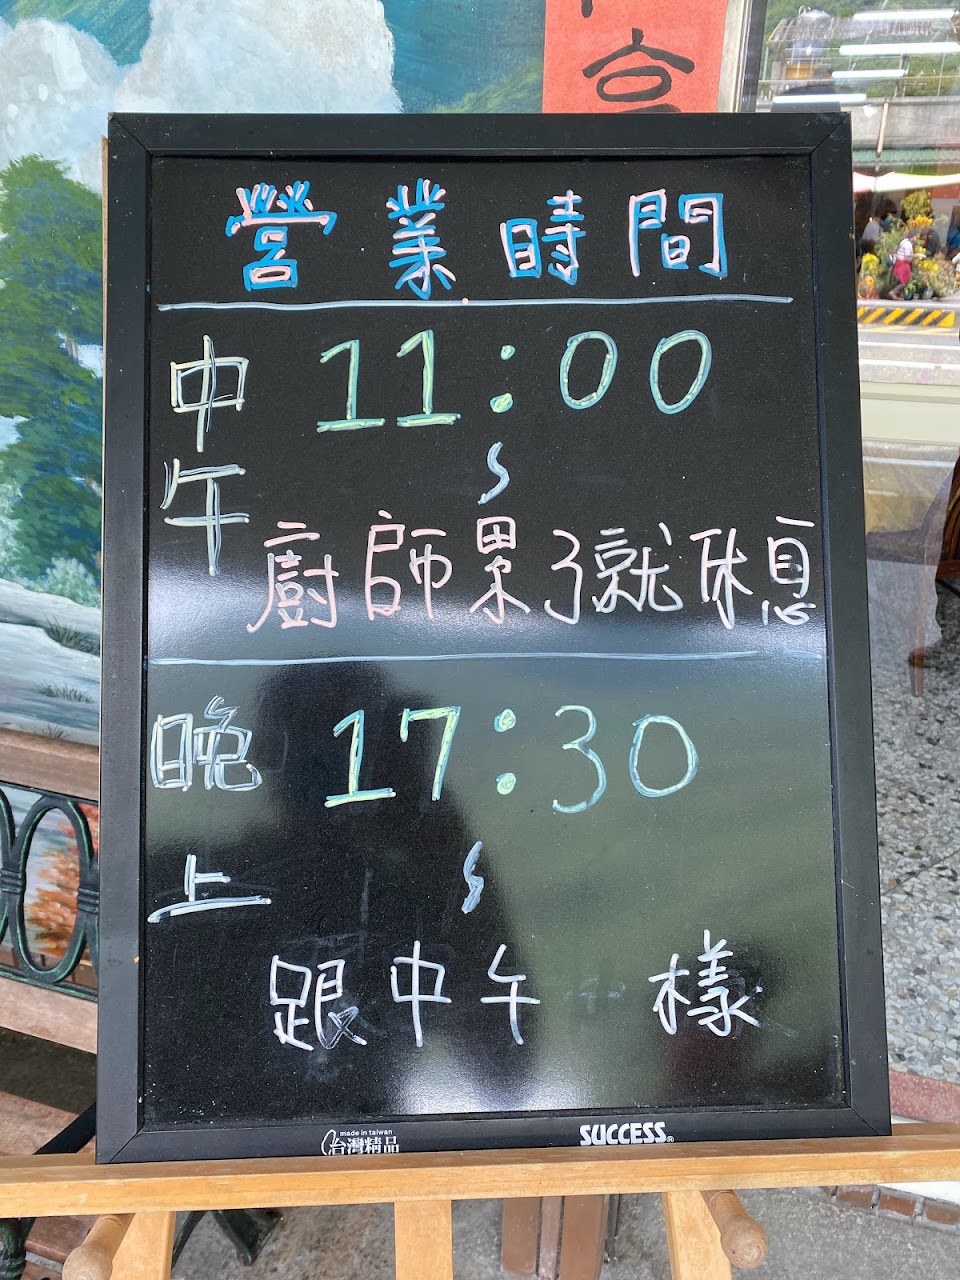 營業時間
中午 11:00
~
廚師累了就休息
晚上 17:30
~
跟中午一樣
made in taiwan
台灣精品
SUCCESS®